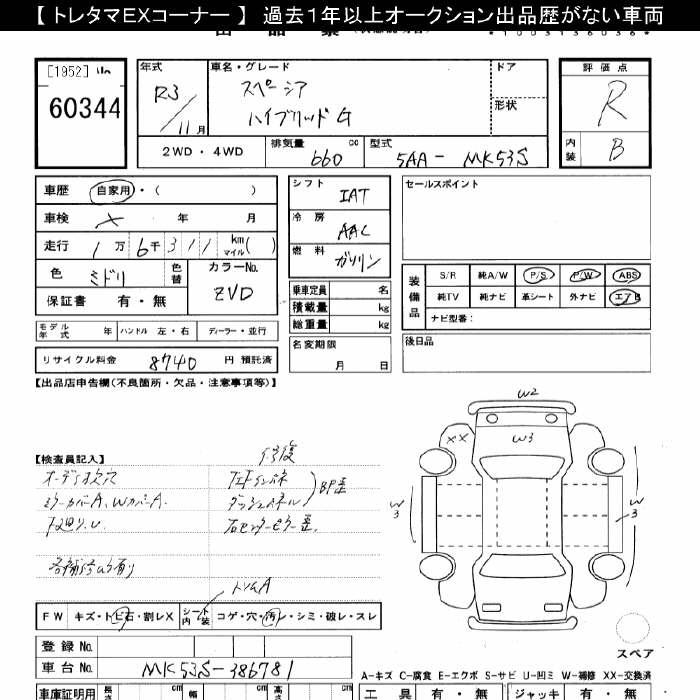 【 トレタマEXコーナー 】 過去1年以上オークション出品歴がない車両
[1952] 山
60344
年式 R3 / 11 月
車名・グレード スペーシア ハイブリッドG
ドア
形状
評価点 R
内装 B
2WD・4WD
排気量 660 cc
型式 5AA - MK53S
車歴 自家用・( )
車検 × 年 月
走行 1万6千311 km マイル( )
色 ミドリ 色替
カラーNo. ZVD
保証書 有・無
シフト IAT
冷房 AAC
燃料 ガソリン
乗車定員 名
積載量 kg
総重量 kg
セールスポイント
装備品
S/R 純A/W P/S P/W ABS
純TV 純ナビ 革シート 外ナビ エアB
ナビ型番:
モデル年式 年 ハンドル 左・右 ディーラー・並行
リサイクル料金 8740 円 預託済
名変期限 月 日
後日品
【出品店申告欄(不良箇所・欠品・注意事項等)】
【検査員記入】
修復
オーディオ欠
ミラーカバーA、WカバーA.
下廻りU
各補修ムラ有り
ダッシュパネル
BP歪
右センターピラー歪.
トリムA
W2
XX
W3
W
3
W
3
FW キズ・トビ石・割レX
シート内装 コゲ・穴・汚レ・シミ・破レ・スレ
スペア
登録No.
車台No. MK53S-386781
A-キズ C-腐食 E-エクボ S-サビ U-凹ミ W-補修 XX-交換済
車庫証明用 長さ cm 幅 cm 高さ cm
工具 有・無 ジャッキ 有・無